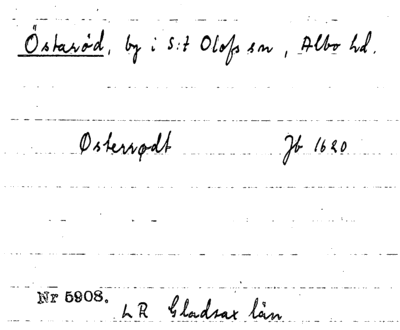 Östaröd, by i S:t Olofs sn, Albo hd.
Østerrødt Jb 1620
Nr 5908.
LR Gladsax län